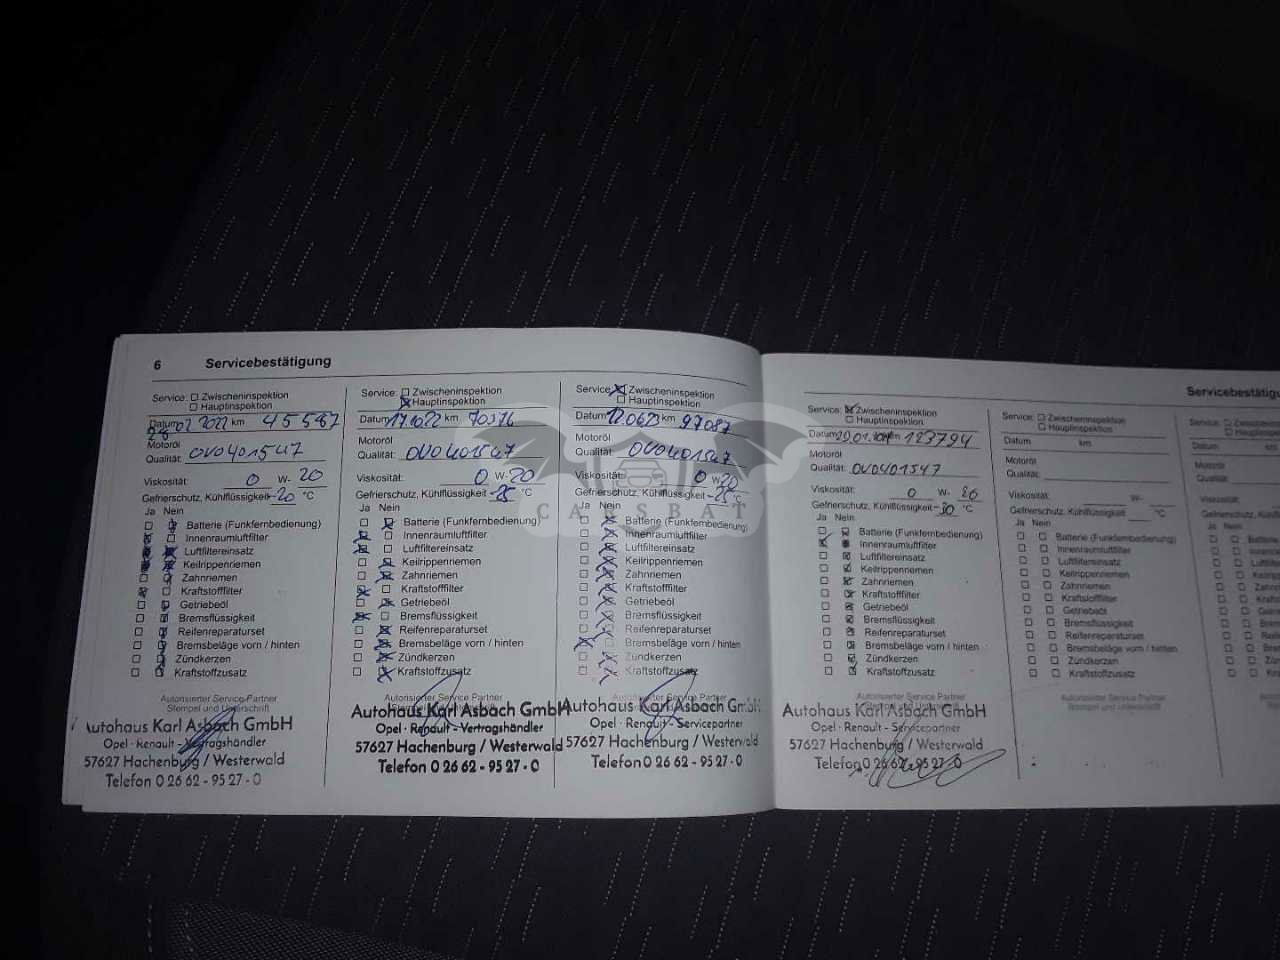 6 Servicebestätigung
Service: Zwischeninspektion
Hauptinspektion
Datum 28.02.2022 km 45587
Motoröl
Qualität: OV0401547
Viskosität: 0 W- 20
Gefrierschutz, Kühlflüssigkeit -20 °C
Ja Nein
Batterie (Funkfernbedienung)
Innenraumluftfilter
Luftfiltereinsatz
Keilrippenriemen
Zahnriemen
Kraftstofffilter
Getriebeöl
Bremsflüssigkeit
Reifenreparaturset
Bremsbeläge vorn / hinten
Zündkerzen
Kraftstoffzusatz
Autorisierter Service Partner
Stempel und Unterschrift
Autohaus Karl Asbach GmbH
Opel - Renault - Vertragshändler
57627 Hachenburg / Westerwald
Telefon 0 26 62 - 95 27 - 0
Service: Zwischeninspektion
Hauptinspektion
Datum 17.10.22 km
Motoröl
Qualität: OV0401547
Viskosität: 0 W- 20
Gefrierschutz, Kühlflüssigkeit -25 °C
Ja Nein
Batterie (Funkfernbedienung)
Innenraumluftfilter
Luftfiltereinsatz
Keilrippenriemen
Zahnriemen
Kraftstofffilter
Getriebeöl
Bremsflüssigkeit
Reifenreparaturset
Bremsbeläge vorn / hinten
Zündkerzen
Kraftstoffzusatz
Autorisierter Service Partner
Autohaus Karl Asbach GmbH
Opel - Renault - Vertragshändler
57627 Hachenburg / Westerwald
Telefon 0 26 62 - 95 27 - 0
Service: Zwischeninspektion
Hauptinspektion
Datum 12.06.23 km 97087
Motoröl
Qualität: OV0401547
Viskosität: 0 W 20
Gefrierschutz, Kühlflüssigkeit -25 °C
Ja Nein
Batterie (Funkfernbedienung)
Innenraumluftfilter
Luftfiltereinsatz
Keilrippenriemen
Zahnriemen
Kraftstofffilter
Getriebeöl
Bremsflüssigkeit
Reifenreparaturset
Bremsbeläge vorn / hinten
Zündkerzen
Kraftstoffzusatz
Autorisierter Service Partner
Autohaus Karl Asbach GmbH
Opel - Renault - Servicepartner
57627 Hachenburg / Westerwald
Telefon 0 26 62 - 95 27 - 0
CARSBAT
Servicebestätigu
Service: Zwischeninspektion
Hauptinspektion
Datum km 123794
Motoröl
Qualität: OV0401547
Viskosität: 0 W- 20
Gefrierschutz, Kühlflüssigkeit -30 °C
Ja Nein
Batterie (Funkfernbedienung)
Innenraumluftfilter
Luftfiltereinsatz
Keilrippenriemen
Zahnriemen
Kraftstofffilter
Getriebeöl
Bremsflüssigkeit
Reifenreparaturset
Bremsbeläge vorn / hinten
Zündkerzen
Kraftstoffzusatz
Autorisierter Service Partner
Autohaus Karl Asbach GmbH
Opel - Renault - Servicepartner
57627 Hachenburg / Westerwald
Telefon 0 26 62 - 95 27 - 0
Service: Zwischeninspektion
Hauptinspektion
Datum km
Motoröl
Qualität:
Viskosität: W-
Gefrierschutz, Kühlflüssigkeit °C
Ja Nein
Batterie (Funkfernbedienung)
Innenraumluftfilter
Luftfiltereinsatz
Keilrippenriemen
Zahnriemen
Kraftstofffilter
Getriebeöl
Bremsflüssigkeit
Reifenreparaturset
Bremsbeläge vorn / hinten
Zündkerzen
Kraftstoffzusatz
Autorisierter Service Partner
Stempel und Unterschrift
Service: Zw
Ha
Datum
Motoröl
Qualität:
Viskosität:
Gefrierschutz, Kühlflüssi
Ja Nein